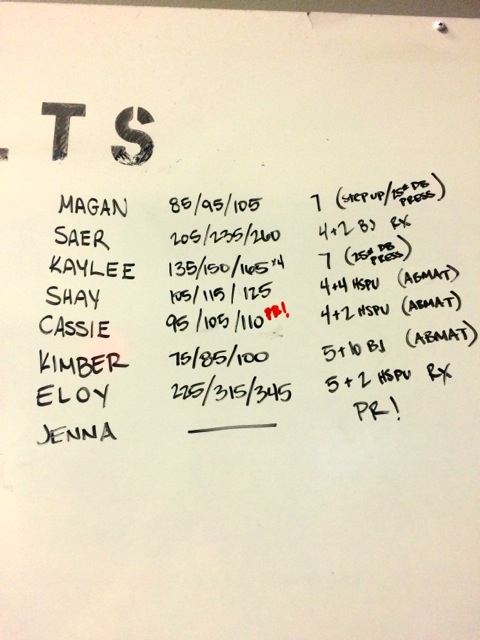 LTS
MAGAN 85/95/105 7 (STEP UP/15# DB PRESS)
SAER 205/235/260 4+2 BJ RX
KAYLEE 135/150/165 x4 7 (25# DB PRESS)
SHAY 105/115/125 4+4 HSPU (ABMAT)
CASSIE 95/105/110 PR! 4+2 HSPU (ABMAT)
KIMBER 75/85/100 5+10 BJ (ABMAT)
ELOY 225/315/345 5+2 HSPU RX
JENNA — PR!